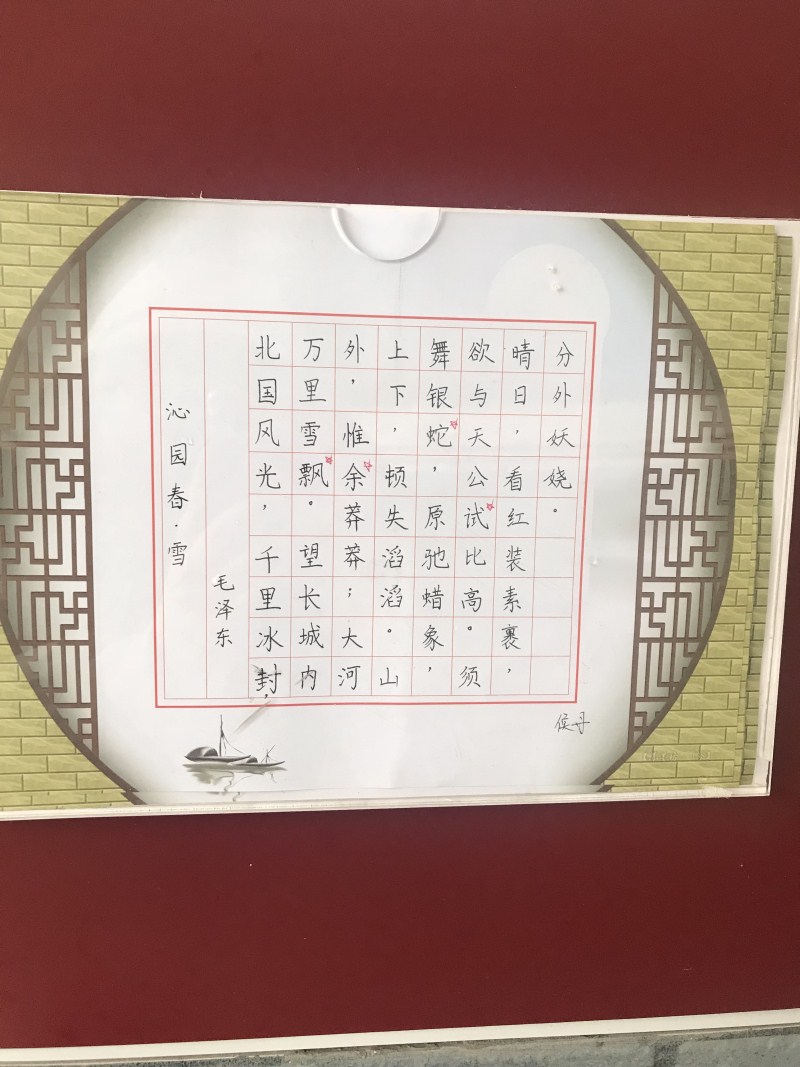 沁园春·雪
毛泽东
北国风光，千里冰封，
万里雪飘。望长城内
外，惟余莽莽；大河
上下，顿失滔滔。山
舞银蛇，原驰蜡象，
欲与天公试比高。须
晴日，看红装素裹，
分外妖娆。
侯丹